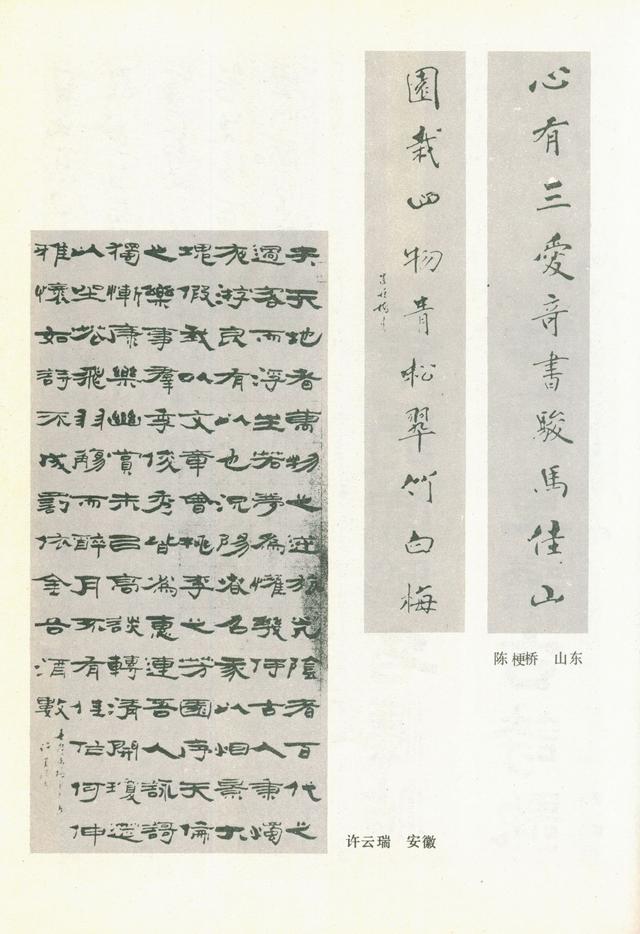 心有三愛竒書駿馬佳山
園栽四物青松翠竹白梅
陈梗桥 山东
夫天地者萬物之逆旅光陰者百代之
過客而浮生若夢為懽幾何古人秉燭
夜游良有以也況陽春召我以烟景大
塊假我以文章會桃李之芳園序天倫
之樂事羣季俊秀皆為惠連吾人詠謌
獨慚康樂幽賞未已高談轉清開瓊筵
以坐花飛羽觴而醉月不有佳作何伸
雅懷如詩不成罰依金谷酒數
许云瑞 安徽